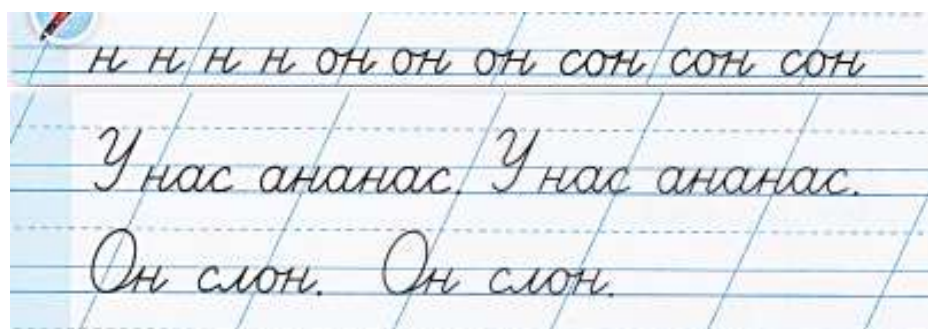 н н н н он он он сон сон сон
У нас ананас. У нас ананас.
Он слон. Он слон.